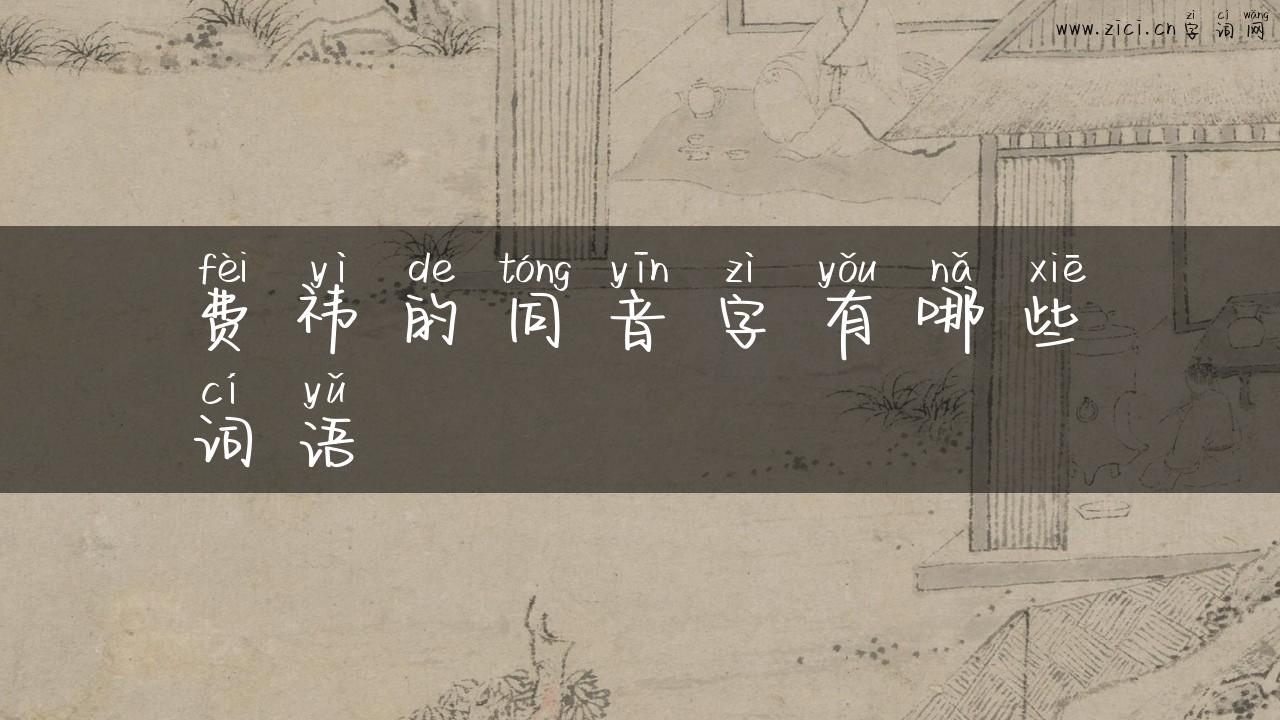 zì cí wǎng
www.zici.cn 字词网
fèi yì de tóng yīn zì yǒu nǎ xiē
费祎的同音字有哪些
cí yǔ
词语